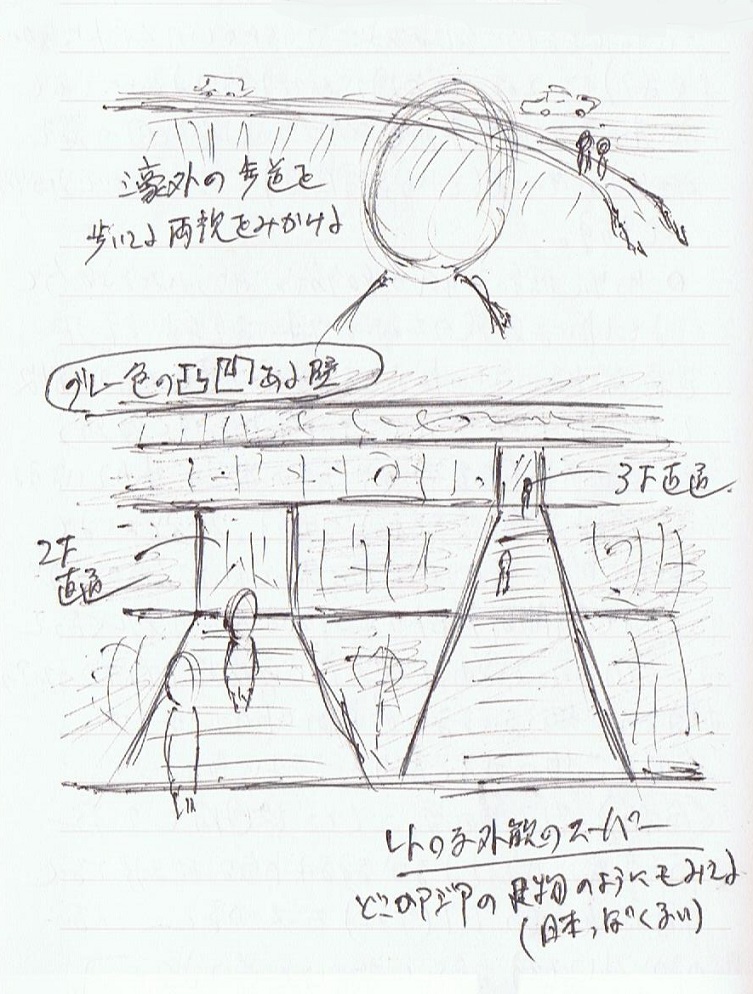 濠外の歩道を
歩いてる両親をみかける
グレー色の凸凹ある壁
3F直通
2F
直通
外観のスーパー
どこかアジアの建物のようにもみえる
(日本っぽくない)